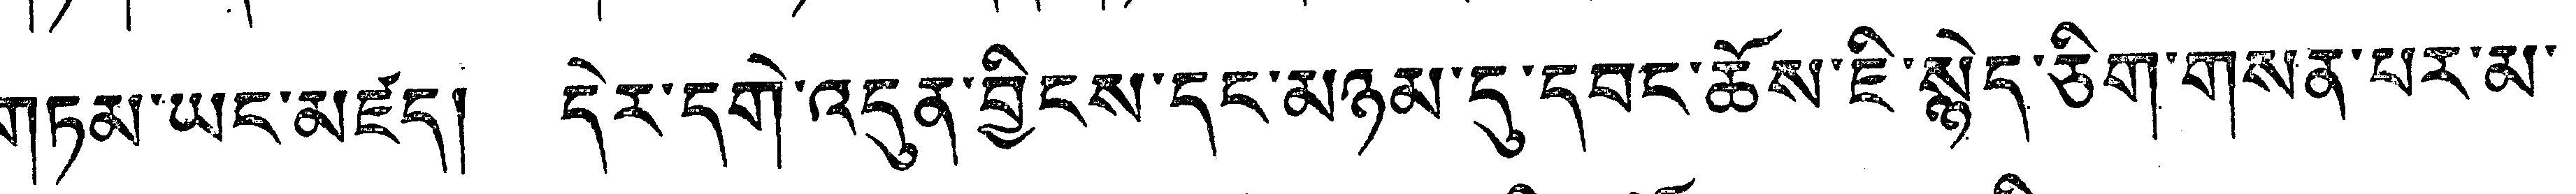 གཏམ་ཡང་མཛད། དེར་དགེ་འདུན་བྱིངས་དང་མཉམ་དུ་དབང་ཆོས་ཇི་སྙེད་ཅིག་གསན་པར་མ་